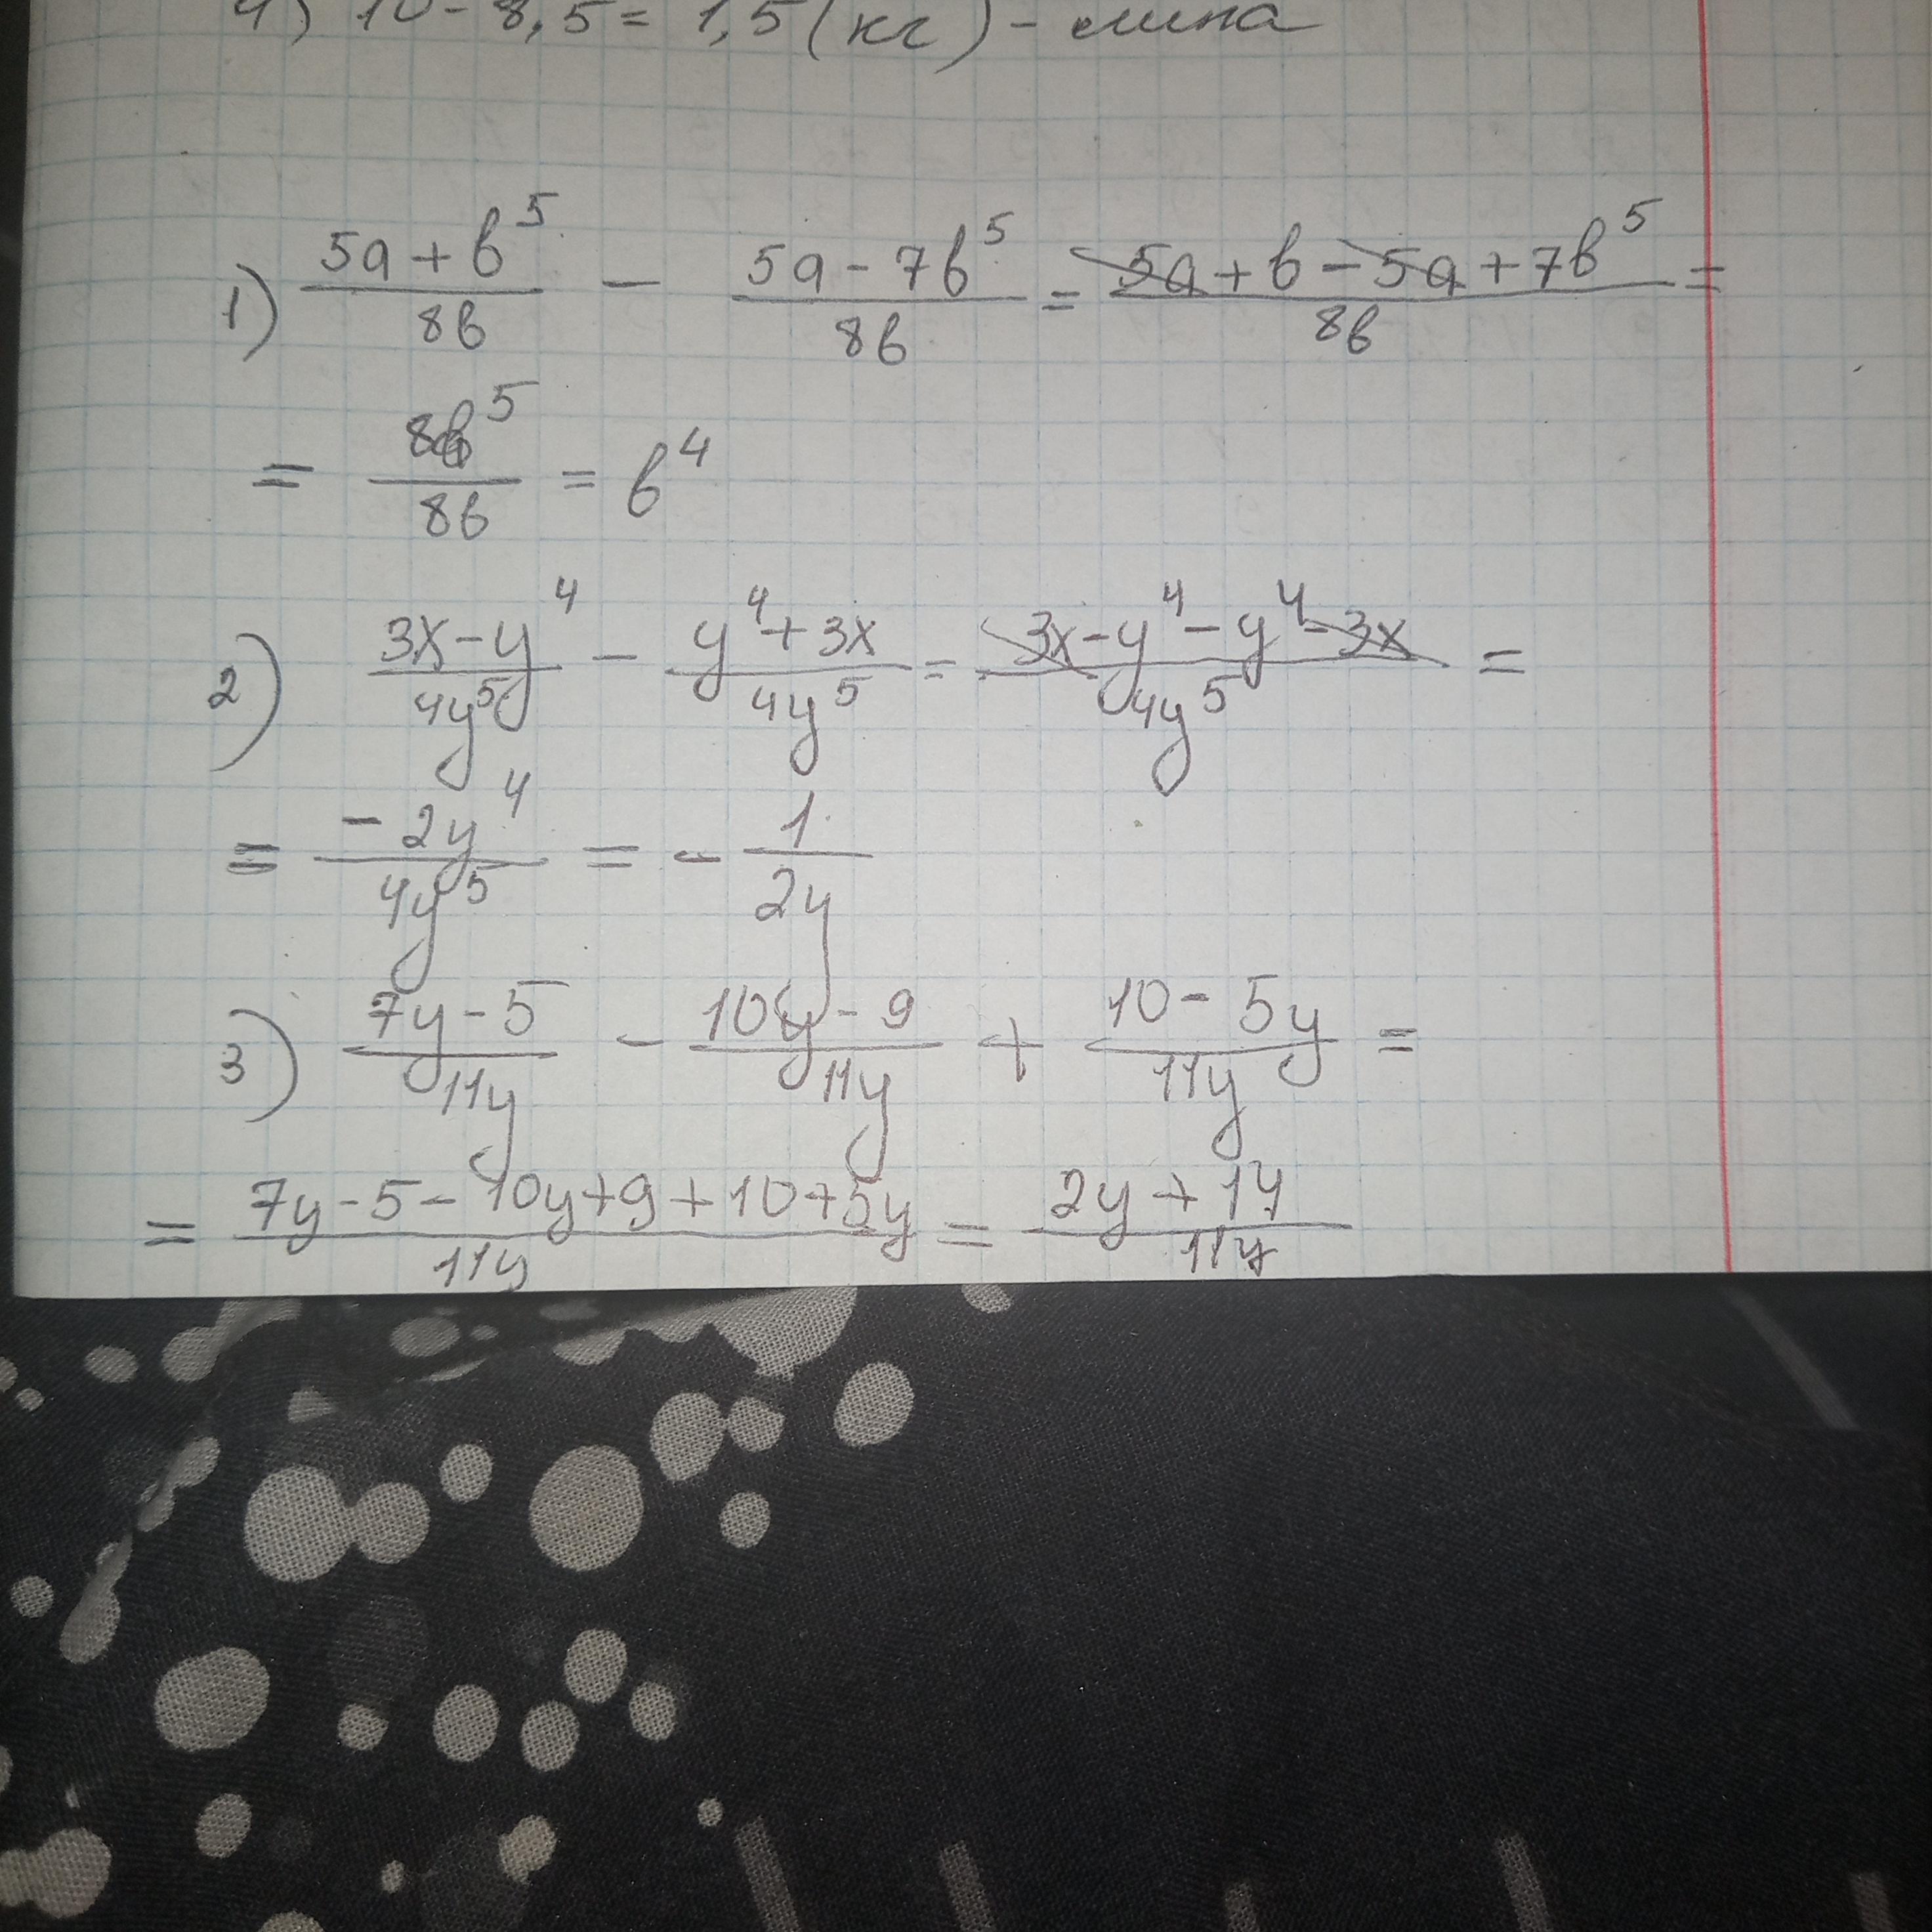 4) 10 - 8,5 = 1,5 (кг) -
1) (5a + b⁵)/(8b) - (5a - 7b⁵)/(8b) = (5a + b - 5a + 7b⁵)/(8b) =
= (8b⁵)/(8b) = b⁴
2) (3x - y⁴)/(4y⁵) - (y⁴ + 3x)/(4y⁵) = (3x - y⁴ - y⁴ - 3x)/(4y⁵) =
= (-2y⁴)/(4y⁵) = - 1/(2y)
3) (7y - 5)/(11y) - (10y - 9)/(11y) + (10 - 5y)/(11y) =
= (7y - 5 - 10y + 9 + 10 + 5y)/(11y) = (2y + 14)/(11y)